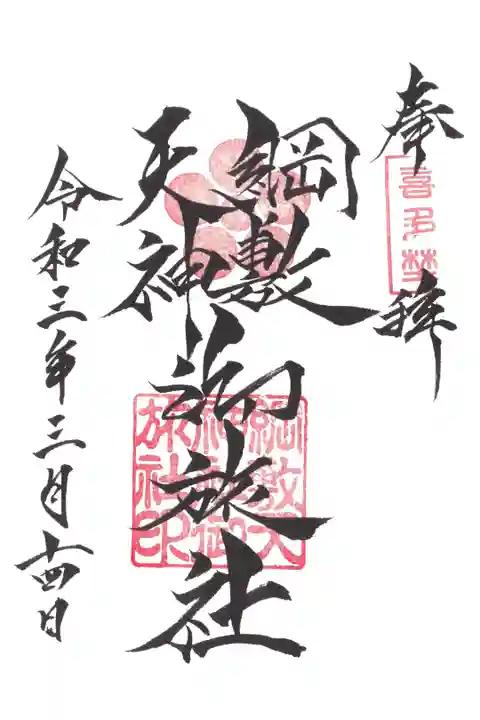 奉拝
喜多埜
綱敷
天神
御旅社
綱敷天
神社御
旅社印
令和三年三月十四日